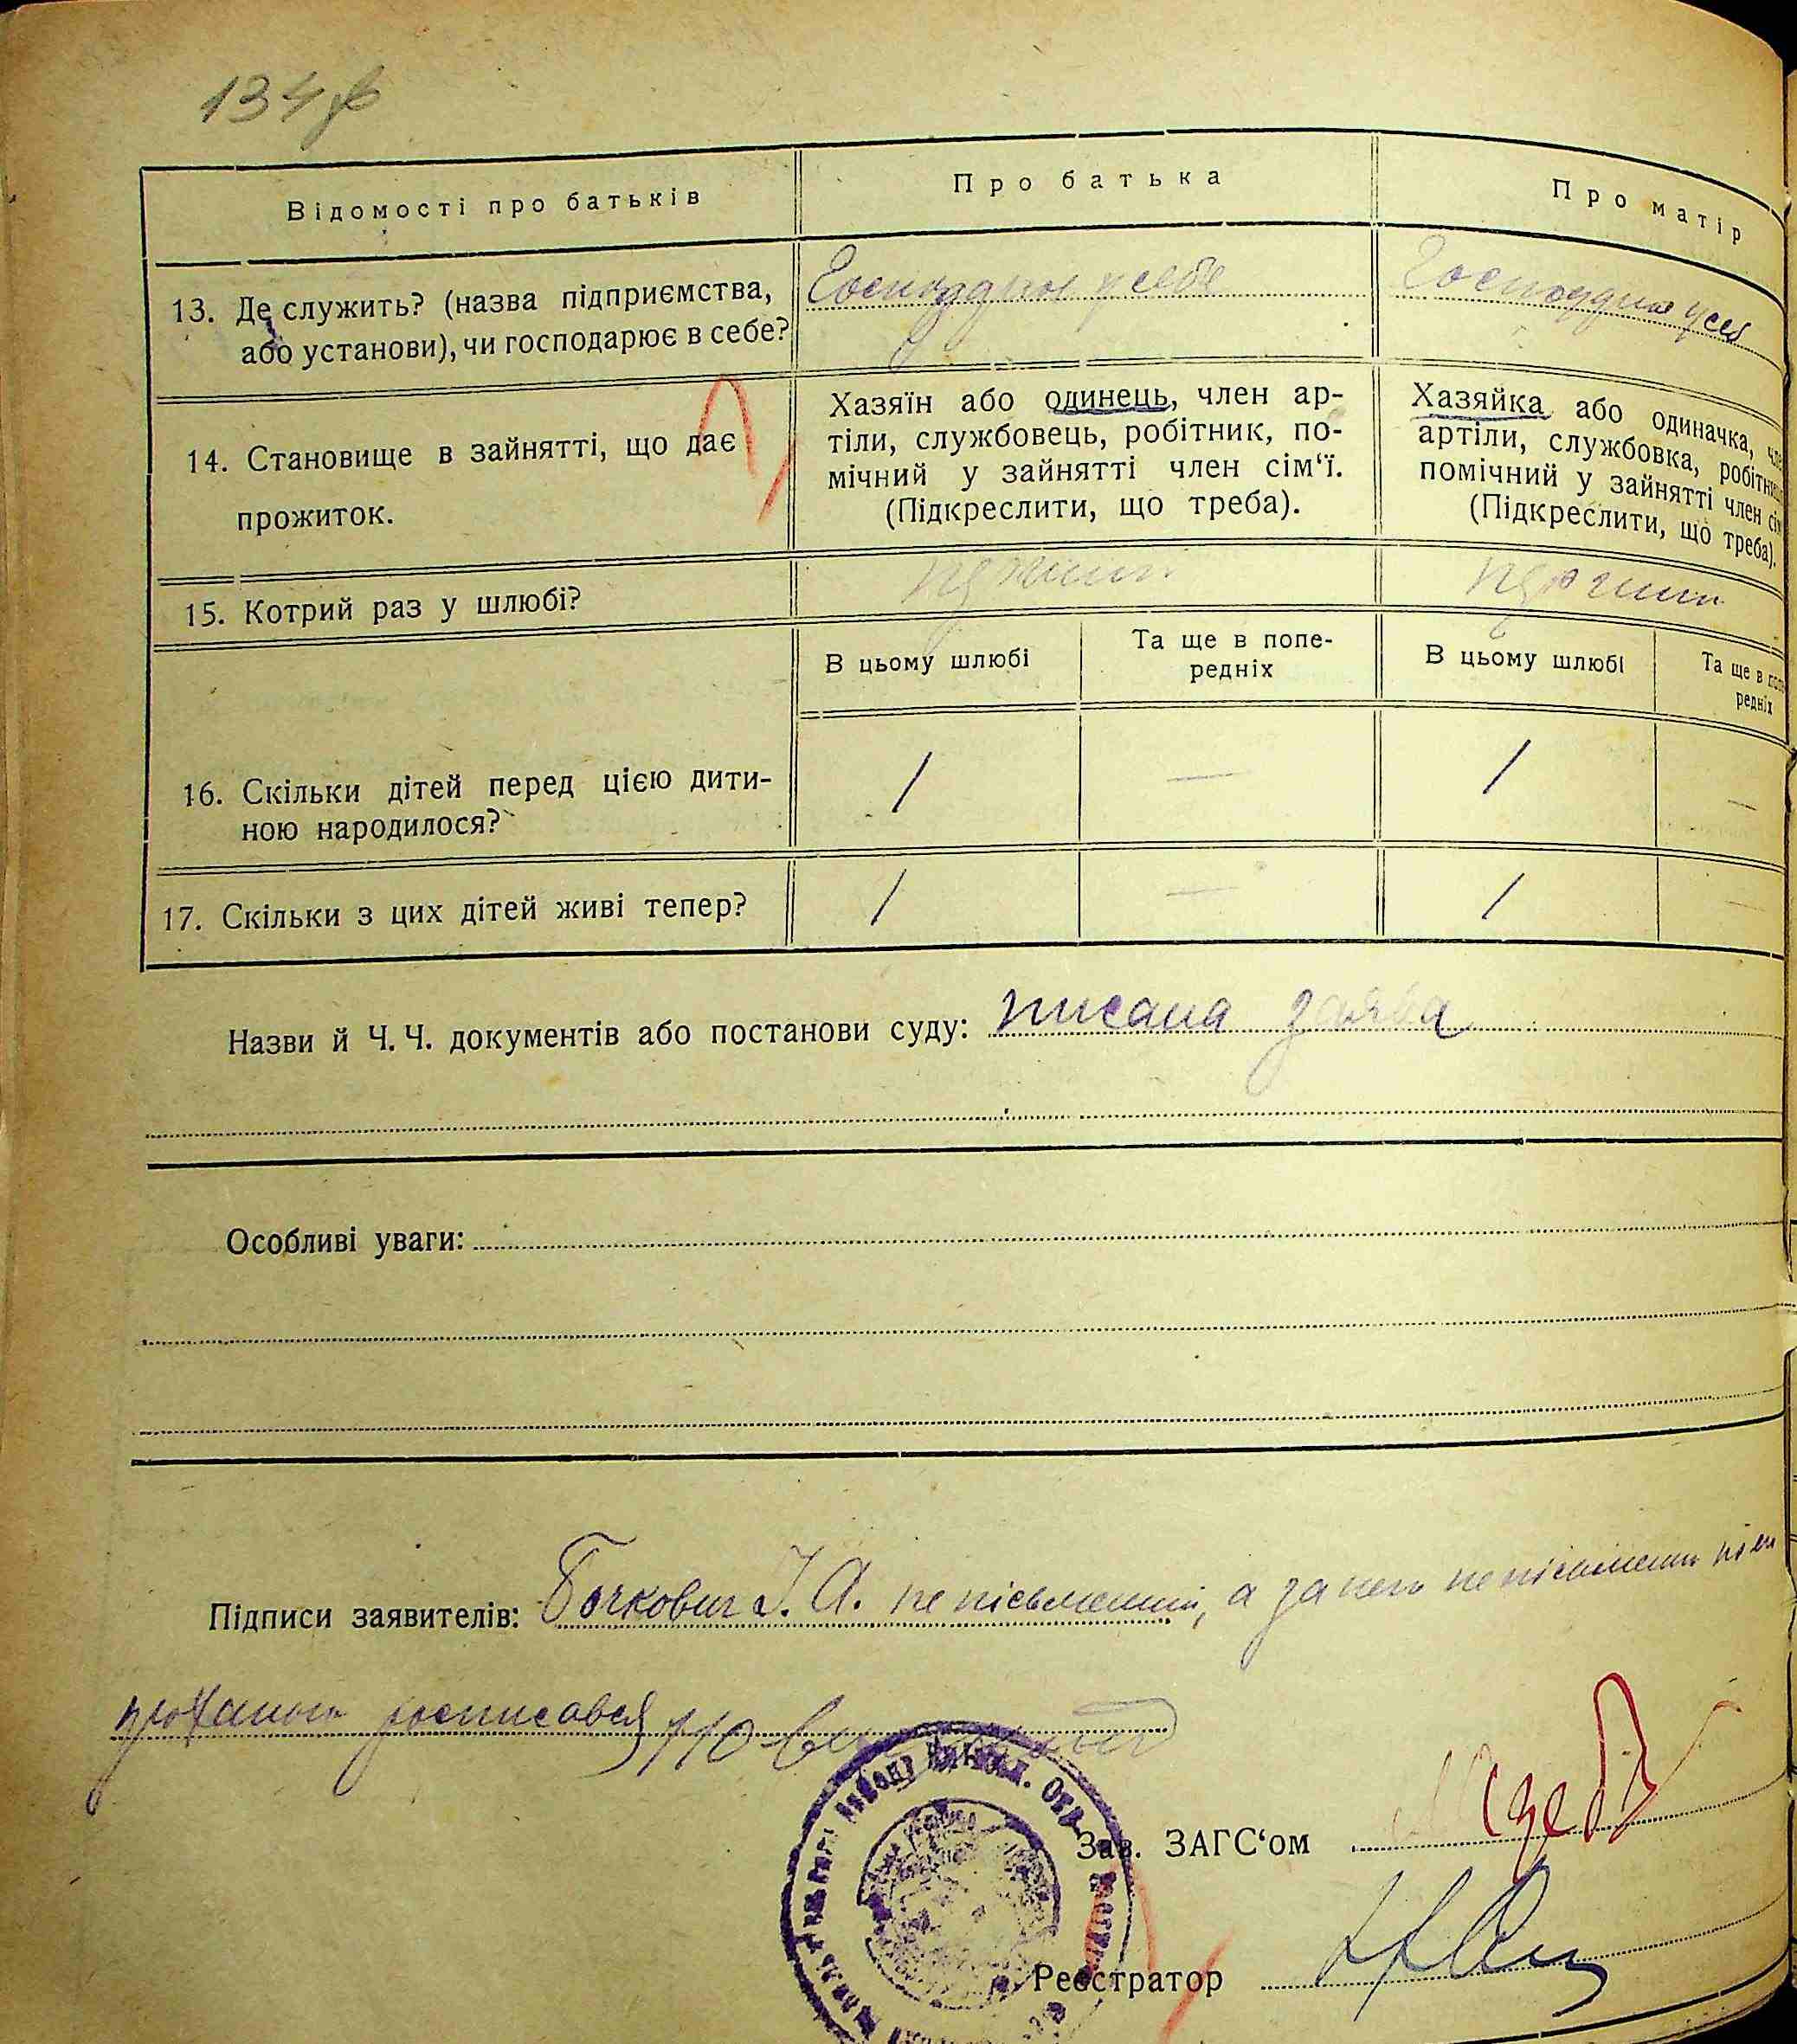 134
Відомості про батьків
Про батька
Про матір
13. Де служить? (назва підприємства,
або установи), чи господарює в себе?
у себе
14. Становище в зайнятті, що дає
прожиток.
Хазяїн або одинець, член ар-
тіли, службовець, робітник, по-
мічний у зайнятті член сім‘ї.
(Підкреслити, що треба).
Хазяйка або одиначка, чле
артіли, службовка, робітниц
помічний у зайнятті член сім
(Підкреслити, що треба).
15. Котрий раз у шлюбі?
В цьому шлюбі
Та ще в попе-
редніх
В цьому шлюбі
Та ще в попе
редніх
16. Скільки дітей перед цією дити-
ною народилося?
1 — 1 —
17. Скільки з цих дітей живі тепер?
1 — 1 —
Назви й Ч. Ч. документів або постанови суду: писана заява
Особливі уваги:
Підписи заявителів: Бочкович І. А. не письменний, а за него
росписався
Зав. ЗАГС‘ом
Реєстратор